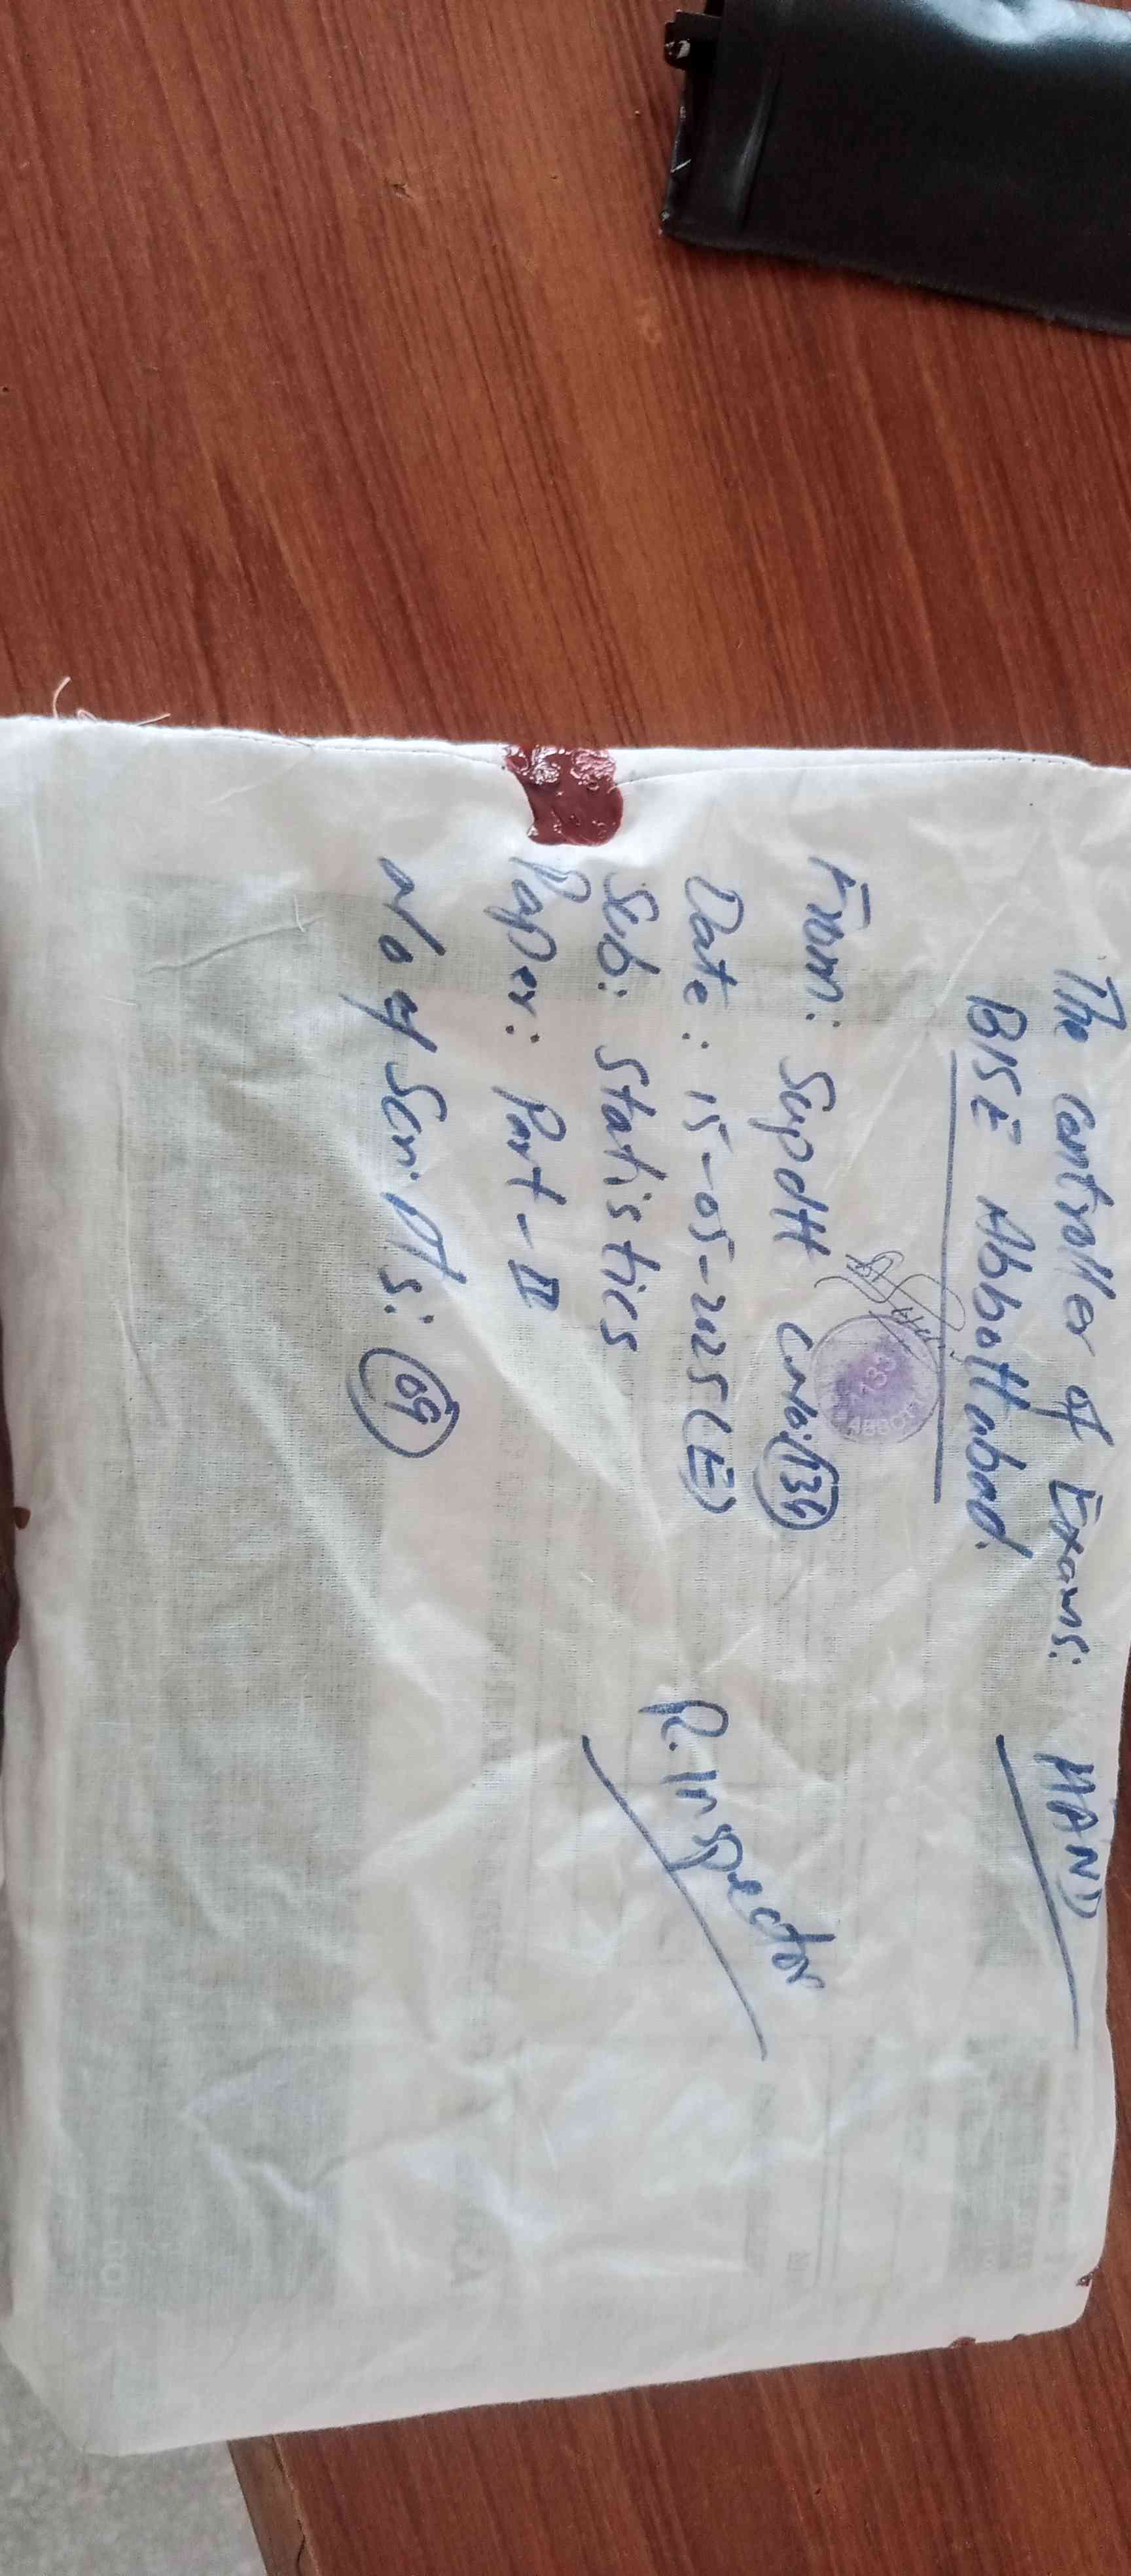 The Controller of Exams: HAND
BISE Abbottabad.
From: Supdtt Code 134
Date: 15-05-2025 (E)
Sub: Statistics
Paper: Part-II
No of Scripts: 09
R. Inspector